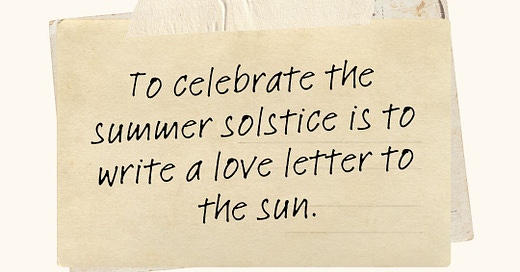 To celebrate the
summer solstice is to
write a love letter to
the sun.